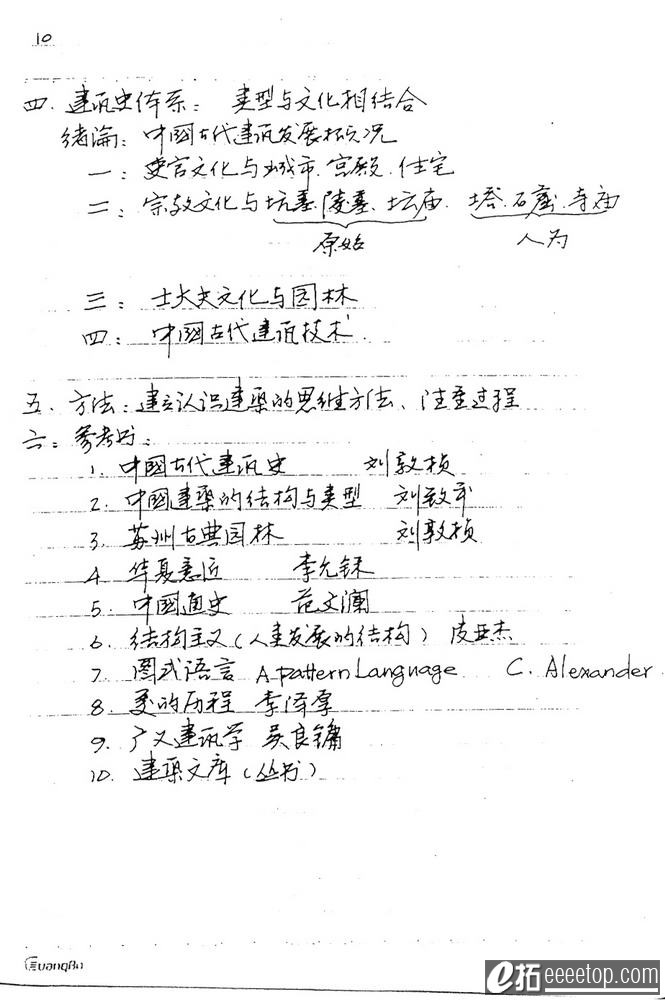 10
四. 建筑史体系: 类型与文化相结合
绪论: 中国古代建筑发展概况
一: 史官文化与城市.宫殿.住宅
二: 宗教文化与坟墓.陵墓.坛庙. 塔.石窟.寺庙
原始 人为
三: 士大夫文化与园林
四: 中国古代建筑技术.
五. 方法: 建立认识建築的思维方法、注重过程
六: 参考书:
1. 中國古代建筑史 刘敦桢
2. 中國建築的结构与类型 刘致平
3. 苏州古典园林 刘敦桢
4 华夏意匠 李允鉌
5. 中國通史 范文澜
6. 结构主义(人类发展的结构) 皮亚杰
7 图式语言 A pattern Language C. Alexander
8. 美的历程 李泽厚
9. 广义建筑学 吴良镛
10. 建築文库(丛书)
GuangBo
e拓 eeeetop.com